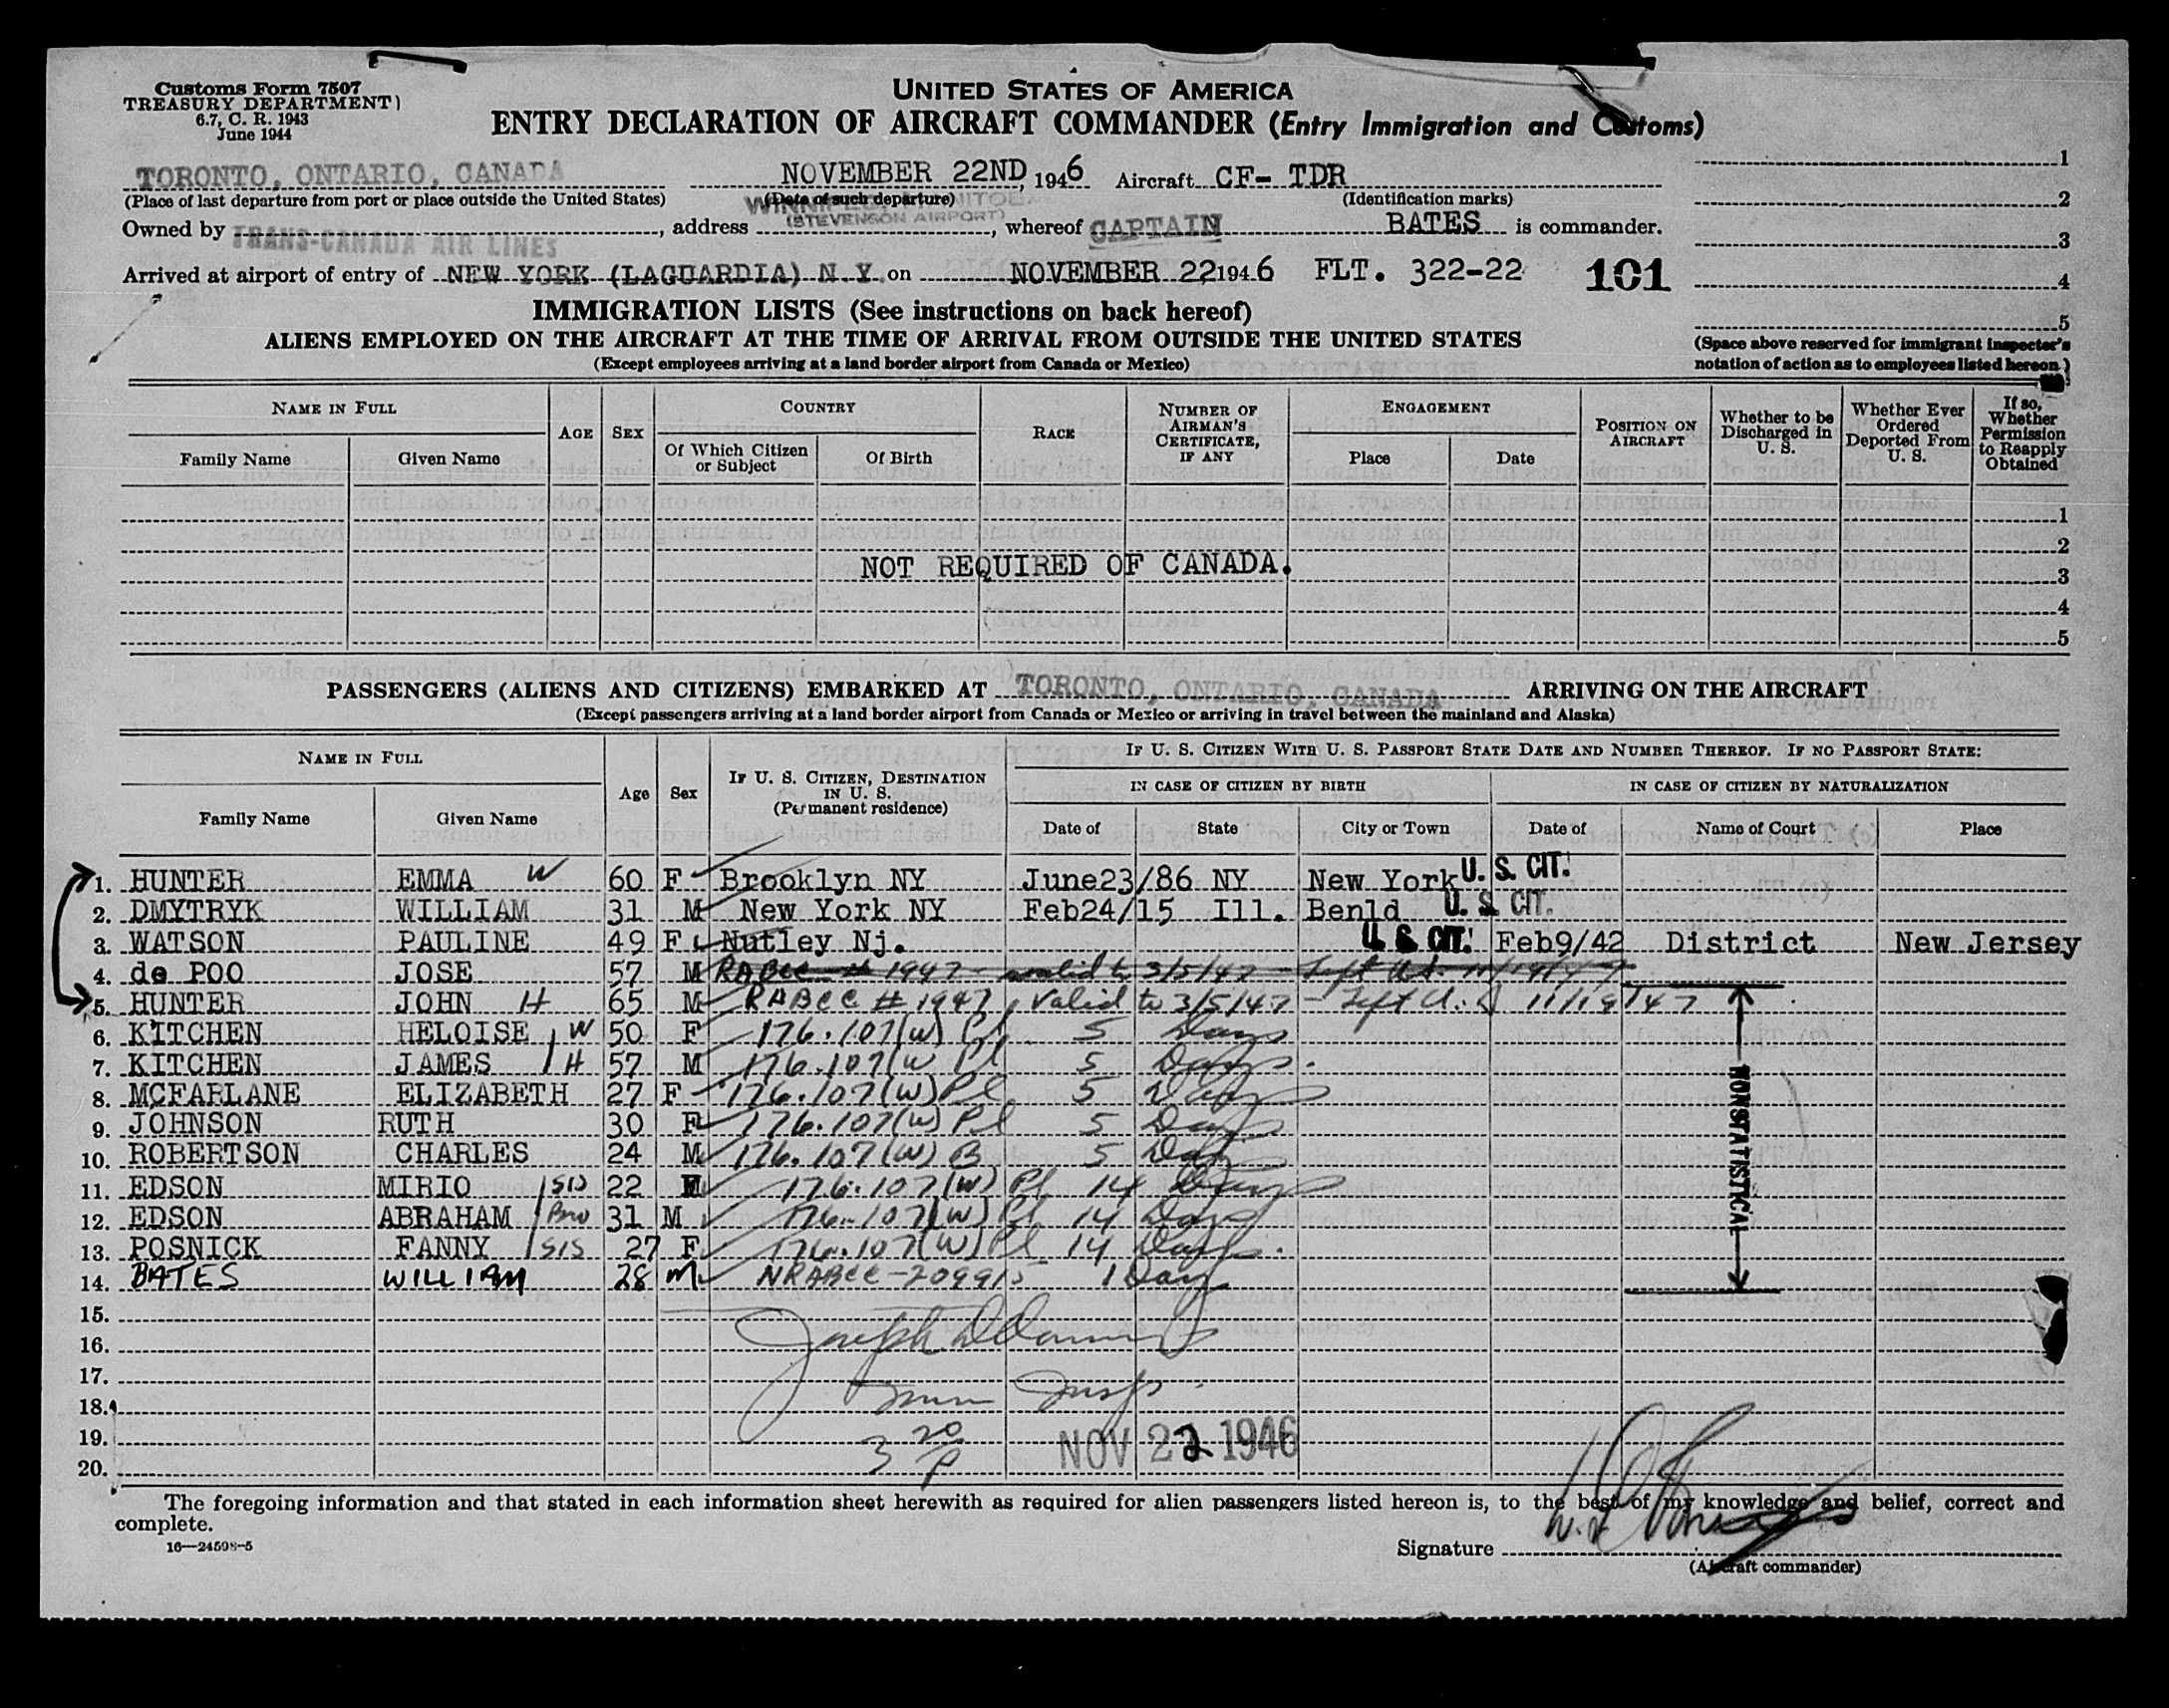 Customs Form 7507
TREASURY DEPARTMENT)
6.7, C. R. 1943
June 1944
UNITED STATES OF AMERICA
ENTRY DECLARATION OF AIRCRAFT COMMANDER (Entry Immigration and Customs)
TORONTO, ONTARIO, CANADA NOVEMBER 22ND, 1946 Aircraft CF- TDR
(Place of last departure from port or place outside the United States) (Date of such departure) (Identification marks)
(STEVENSON AIRPORT)
Owned by TRANS-CANADA AIR LINES, address, whereof CAPTAIN BATES is commander.
Arrived at airport of entry of NEW YORK (LAGUARDIA) N Y. on NOVEMBER 22 1946 FLT. 322-22 101
1
2
3
4
5
(Space above reserved for immigrant inspector's notation of action as to employees listed hereon)
IMMIGRATION LISTS (See instructions on back hereof)
ALIENS EMPLOYED ON THE AIRCRAFT AT THE TIME OF ARRIVAL FROM OUTSIDE THE UNITED STATES
(Except employees arriving at a land border airport from Canada or Mexico)
NAME IN FULL AGE SEX COUNTRY RACE NUMBER OF AIRMAN'S CERTIFICATE, IF ANY ENGAGEMENT POSITION ON AIRCRAFT Whether to be Discharged in U. S. Whether Ever Ordered Deported From U. S. If so, Whether Permission to Reapply Obtained
Family Name Given Name Of Which Citizen or Subject Of Birth Place Date
1
2
NOT REQUIRED OF CANADA.
3
4
5
PASSENGERS (ALIENS AND CITIZENS) EMBARKED AT TORONTO, ONTARIO, CANADA ARRIVING ON THE AIRCRAFT
(Except passengers arriving at a land border airport from Canada or Mexico or arriving in travel between the mainland and Alaska)
NAME IN FULL Age Sex IF U. S. CITIZEN, DESTINATION IN U. S. (Permanent residence) IF U. S. CITIZEN WITH U. S. PASSPORT STATE DATE AND NUMBER THEREOF. IF NO PASSPORT STATE:
IN CASE OF CITIZEN BY BIRTH IN CASE OF CITIZEN BY NATURALIZATION
Family Name Given Name Date of State City or Town Date of Name of Court Place
1. HUNTER EMMA W 60 F Brooklyn NY June23/86 NY New York U. S. CIT.
2. DMYTRYK WILLIAM 31 M New York NY Feb24/15 Ill. Benld U. S. CIT.
3. WATSON PAULINE 49 F Nutley Nj. U. S. CIT. Feb9/42 District New Jersey
4. de POO JOSE 57 M RABCC # 1947 - valid to 3/5/47 - Left U.S. 11/19/47
5. HUNTER JOHN H 65 M RABCC # 1947, Valid to 3/5/47 - Left U.S. 11/19/47
6. KITCHEN HELOISE W 50 F 176.107(W) Pl 5 Days
7. KITCHEN JAMES H 57 M 176.107(W Pl 5 Days.
8. MCFARLANE ELIZABETH 27 F 176.107(W) Pl 5 Days
9. JOHNSON RUTH 30 F 176.107(W) Pl 5 Days
10. ROBERTSON CHARLES 24 M 176.107(W) B 5 Days
11. EDSON MIRIO SIS 22 F 176.107(W) Pl 14 Days
12. EDSON ABRAHAM Bro 31 M 176.107(W) Pl 14 Days
13. POSNICK FANNY SIS 27 F 176.107(W) Pl 14 Days.
14. BATES WILLIAM 28 M NRABCC-209915 1 Day
NONSTATISTICAL
15.
16. Joseph
17.
18. Imm Insp.
19. 3 20 P NOV 22 1946
20.
The foregoing information and that stated in each information sheet herewith as required for alien passengers listed hereon is, to the best of my knowledge and belief, correct and
complete.
16—24598-5
Signature
(Aircraft commander)